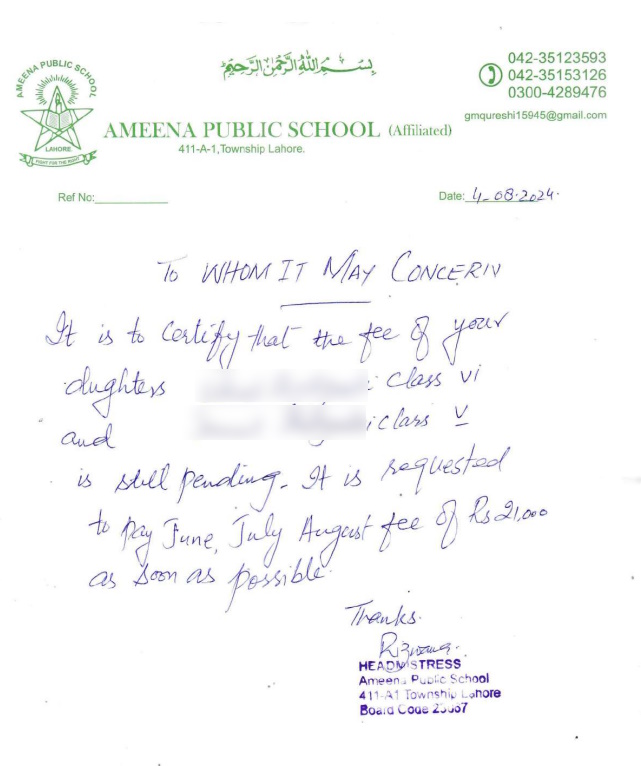 AMEENA PUBLIC SCHOOL
LAHORE
FIGHT FOR THE RIGHT
بِسْمِ اللّٰهِ الرَّحْمٰنِ الرَّحِيْمِ
042-35123593
042-35153126
0300-4289476
gmqureshi15945@gmail.com
AMEENA PUBLIC SCHOOL (Affiliated)
411-A-1,Township Lahore.
Ref No:
Date: 4-08-2024.
To WHOM IT MAY CONCERN
It is to certify that the fee of your
dughters class vi
and class V
is still pending. It is requested
to pay June, July August fee of Rs 21,000
as soon as possible.
Thanks.
Rizwana
HEADMISTRESS
Ameena Public School
411-A1 Township Lahore
Board Code